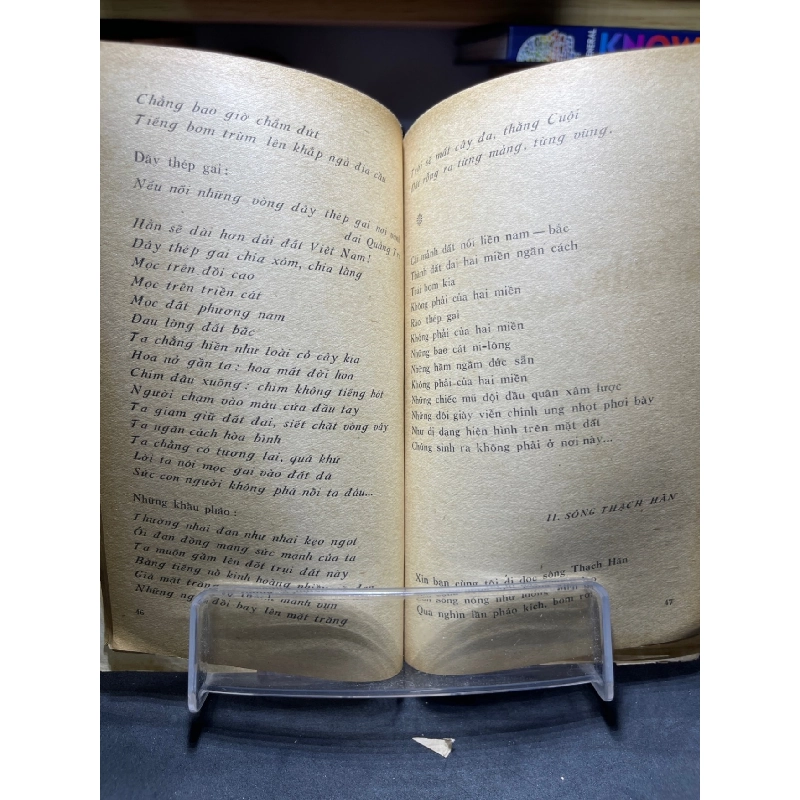 KNOW
Chẳng bao giờ chấm dứt
Tiếng bom trùm lên khắp ngả địa cầu
Dây thép gai:
Nếu nối những vòng dây thép gai nơi
đai Quảng
Hẳn sẽ dài hơn dải đất Việt Nam!
Dây thép gai chia xóm, chia làng
Mọc trên đồi cao
Mọc trên triền cát
Mọc đất phương nam
Đau lòng đất bắc
Ta chẳng hiền như loài cỏ cây kia
Hoa nở gần ta: hoa mất đời hoa
Chim đậu xuống: chim không tiếng hót
Người chạm vào máu cứa đầu tay
Ta giam giữ đất đai, siết chặt vòng vây
Ta ngăn cách hòa bình
Ta chẳng có tương lai, quá khứ
Lời ta nói mọc gai vào đất đá
Sức con người không phá nổi ta đâu...
Những khẩu pháo:
Thường nhai đạn như nhai kẹo ngọt
Ôi đạn đồng mang sức mạnh của ta
Ta muốn gầm lên đốt trụi đất này
Bằng tiếng nổ kinh hoàng
Giá mặt trăng mảnh vụn
Những đồi bay lên mặt trăng
46
Trời sẽ mất cây đa, thằng Cuội
Đất rỗng ra từng mảng, từng vùng.
Cái mảnh đất nối liền nam — bắc
Thành đất đai hai miền ngăn cách
Trái bom kia
Không phải của hai miền
Rào thép gai
Không phải của hai miền
Những bao cát ni-lông
Những hầm ngầm đúc sẵn
Không phải của hai miền
Những chiếc mũ đội đầu quân xâm lược
Những đôi giày viễn chinh ung nhọt phơi bày
Như dị dạng hiện hình trên mặt đất
Chúng sinh ra không phải ở nơi này...
II. SÔNG THẠCH HÃN
Xin bạn cùng tôi đi dọc sông Thạch Hãn
sông nóng như
Qua nghìn lần pháo kích, bom rơi
47